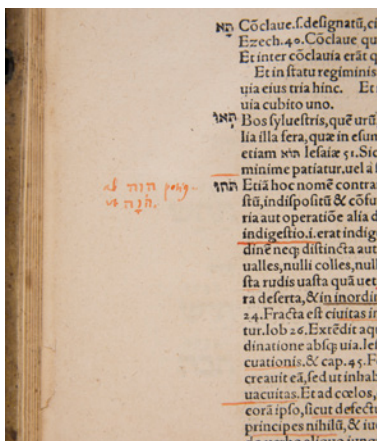 תָא Cōclaue.ſ.deſignatū,ci
Ezech.40.Cōclaue qu
Et inter cōclauia erāt q
Et in ſtatu regiminis
uia eius tria hinc. Et
uia cubito uno.
תאו Bos ſylueſtris,quē urū
lia illa fera,quæ in eſum
etiam תוא Ieſaiæ 51.Sic
minime patiatur.uel a
ab
ut
תהו Etiā hoc nomē contra
ſtū,indiſpoſitū & cōfu
ria aut operatiōe alia d
indigeſtio.i.erat indig
dinē neq; diſtincta aut
ualles,nulli colles,null
ſta rudis uaſta quā uet
ra deſerta,& in inordin
24.Fracta eſt ciuitas in
tur.Iob 26.Extēdit aqu
dinatione abſq; uia.Ieſ
cuationis.& cap.45.
creauit eā,ſed ut inhab
uacuitas.Et ad cœlos,
corā ipſo,ſicut defectu
principes nihilū,& iu